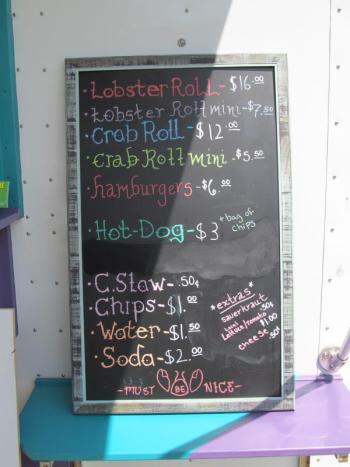 · Lobster Roll - $16.00
· Lobster Roll mini - $7.50
· Crab Roll - $12.00
· Crab Roll mini - $5.50
· hamburgers - $6.00
· Hot-Dog - $3 + bag of chips
· C. Slaw - .50¢
· Chips - $1.00
· Water - $1.50
· Soda - $2.00
*extras*
sauerkraut .50¢
Lettuce/tomato $1.00
cheese .50¢
- MUST BE NICE -